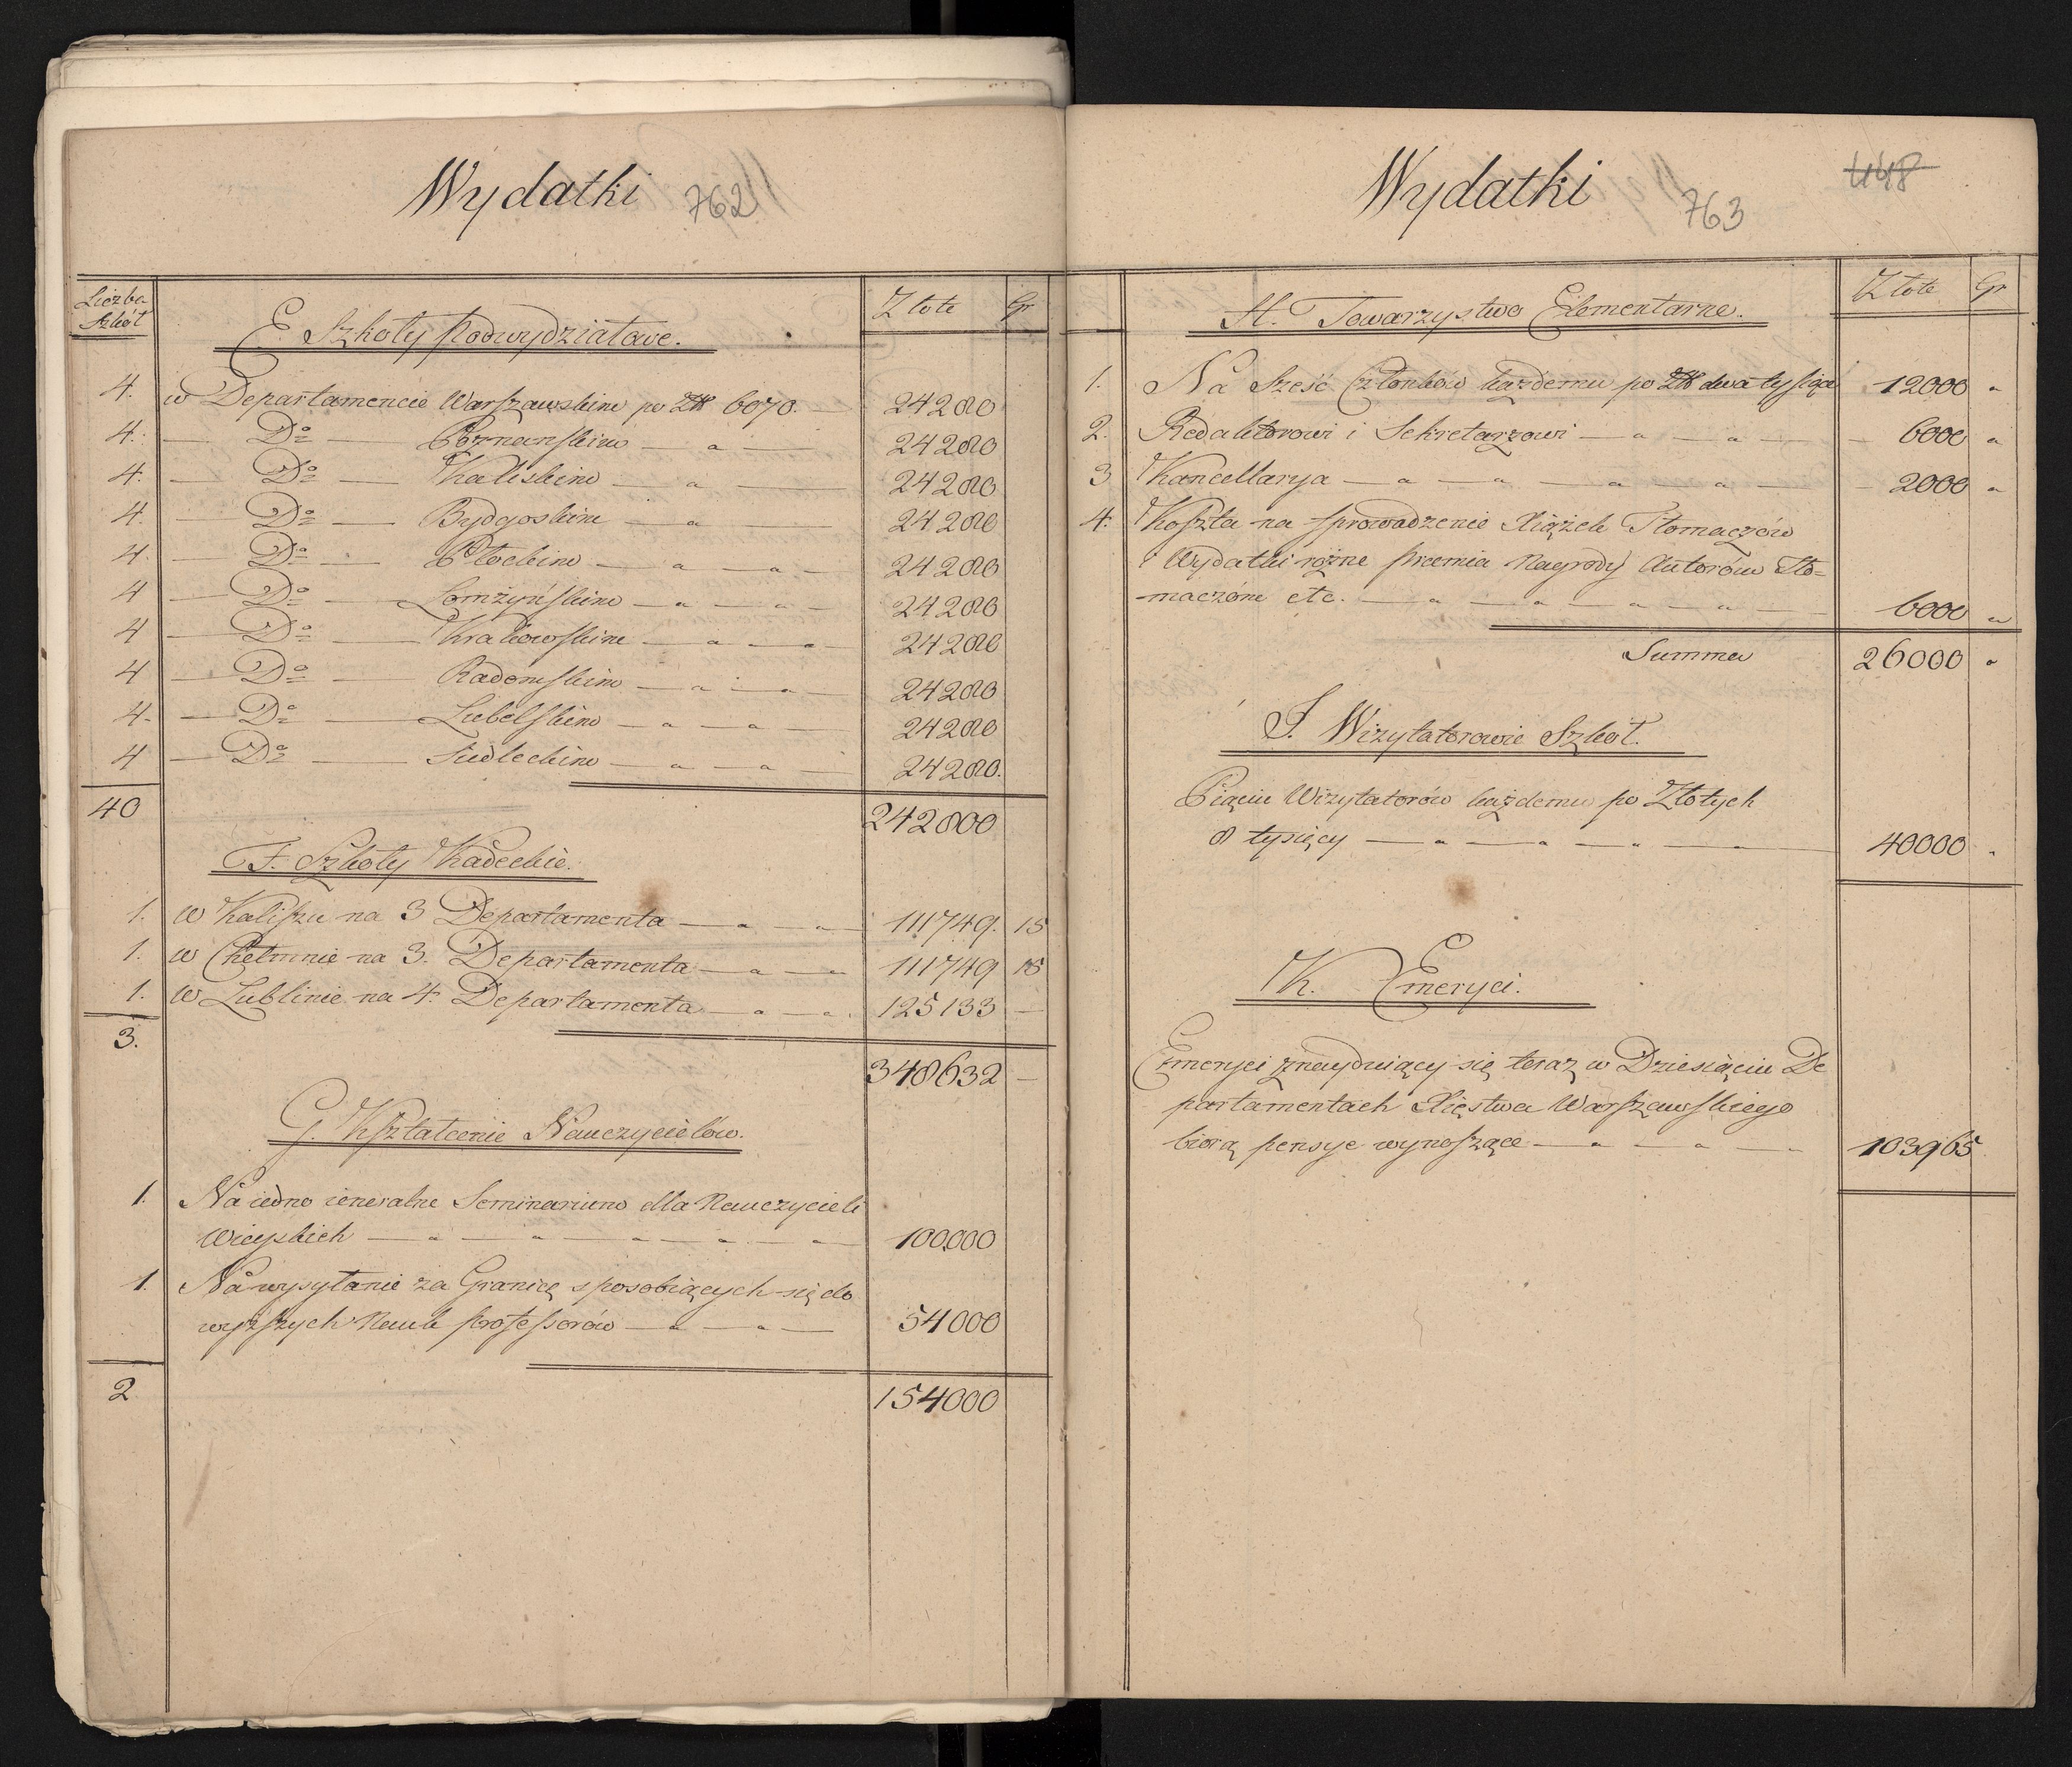 Wydatki 762
Liczba Szkół Złote Gr
E Szkoły Podwydziałowe.
4. w Departamencie Warszawskim po Zł 6070. 24280
4. — Do — Poznanskim — " — 24280
4. — Do — Kaliskim — " — 24280
4. — Do — Bydgoskim — " — 24280
4. — Do — Płockim — " — " — 24280
4 — Do — Łomżyńskim — " — " — 24280
4 — Do — Krakowskim — " — " — 24280
4 — Do — Radomskim — " — " — 24280
4. — Do — Lubelskim — " — " 24280
4 — Do — Siedleckim — " — " — 24280.
40 242800
F. Szkoły Kadeckie.
1. w Kaliszu na 3 Departamenta — " — " — 111749. 15
1. w Chełmnie na 3. Departamenta — " — " 111749 15
1. w Lublinie na 4. Departamenta — " — " 125133 —
3. 348632 —
G. Kształcenie Nauczycielów.
1. Na iedno ieneralne Seminarium dla Nauczycieli
Wieyskich — " — " — " — " — " — 100000
1. Na wysyłanie za Granicę sposobiących się do
wyższych Nauk professorów — " — " — 54000
2 154000
Wydatki 763
448
Złote Gr
H. Towarzystwo Elementarne.
1. Na Sześć Członków każdemu po Zł dwa tysiące 12000 "
2. Redaktorowi i Sekretarzowi — " — " — 6000 "
3 Kancellarya — " — " — " — " — 2000 "
4. Koszta na sprowadzenie Xiążek Tłomaczów
i Wydatki rożne premia Nagrody Autorów Tło-
maczóne etc. — " — " — " — " — 6000 "
Summa 26000 "
I. Wizytatorowie Szkół.
Pięciu Wizytatorów każdemu po Złotych
8 tysięcy — " — " — " — " — 40000 "
K. Emeryci.
Emeryci znayduiący się teraz w Dziesięciu De
partamentach Xięstwa Warszawskiego
biorą pensye wynoszące — " — " — 103965